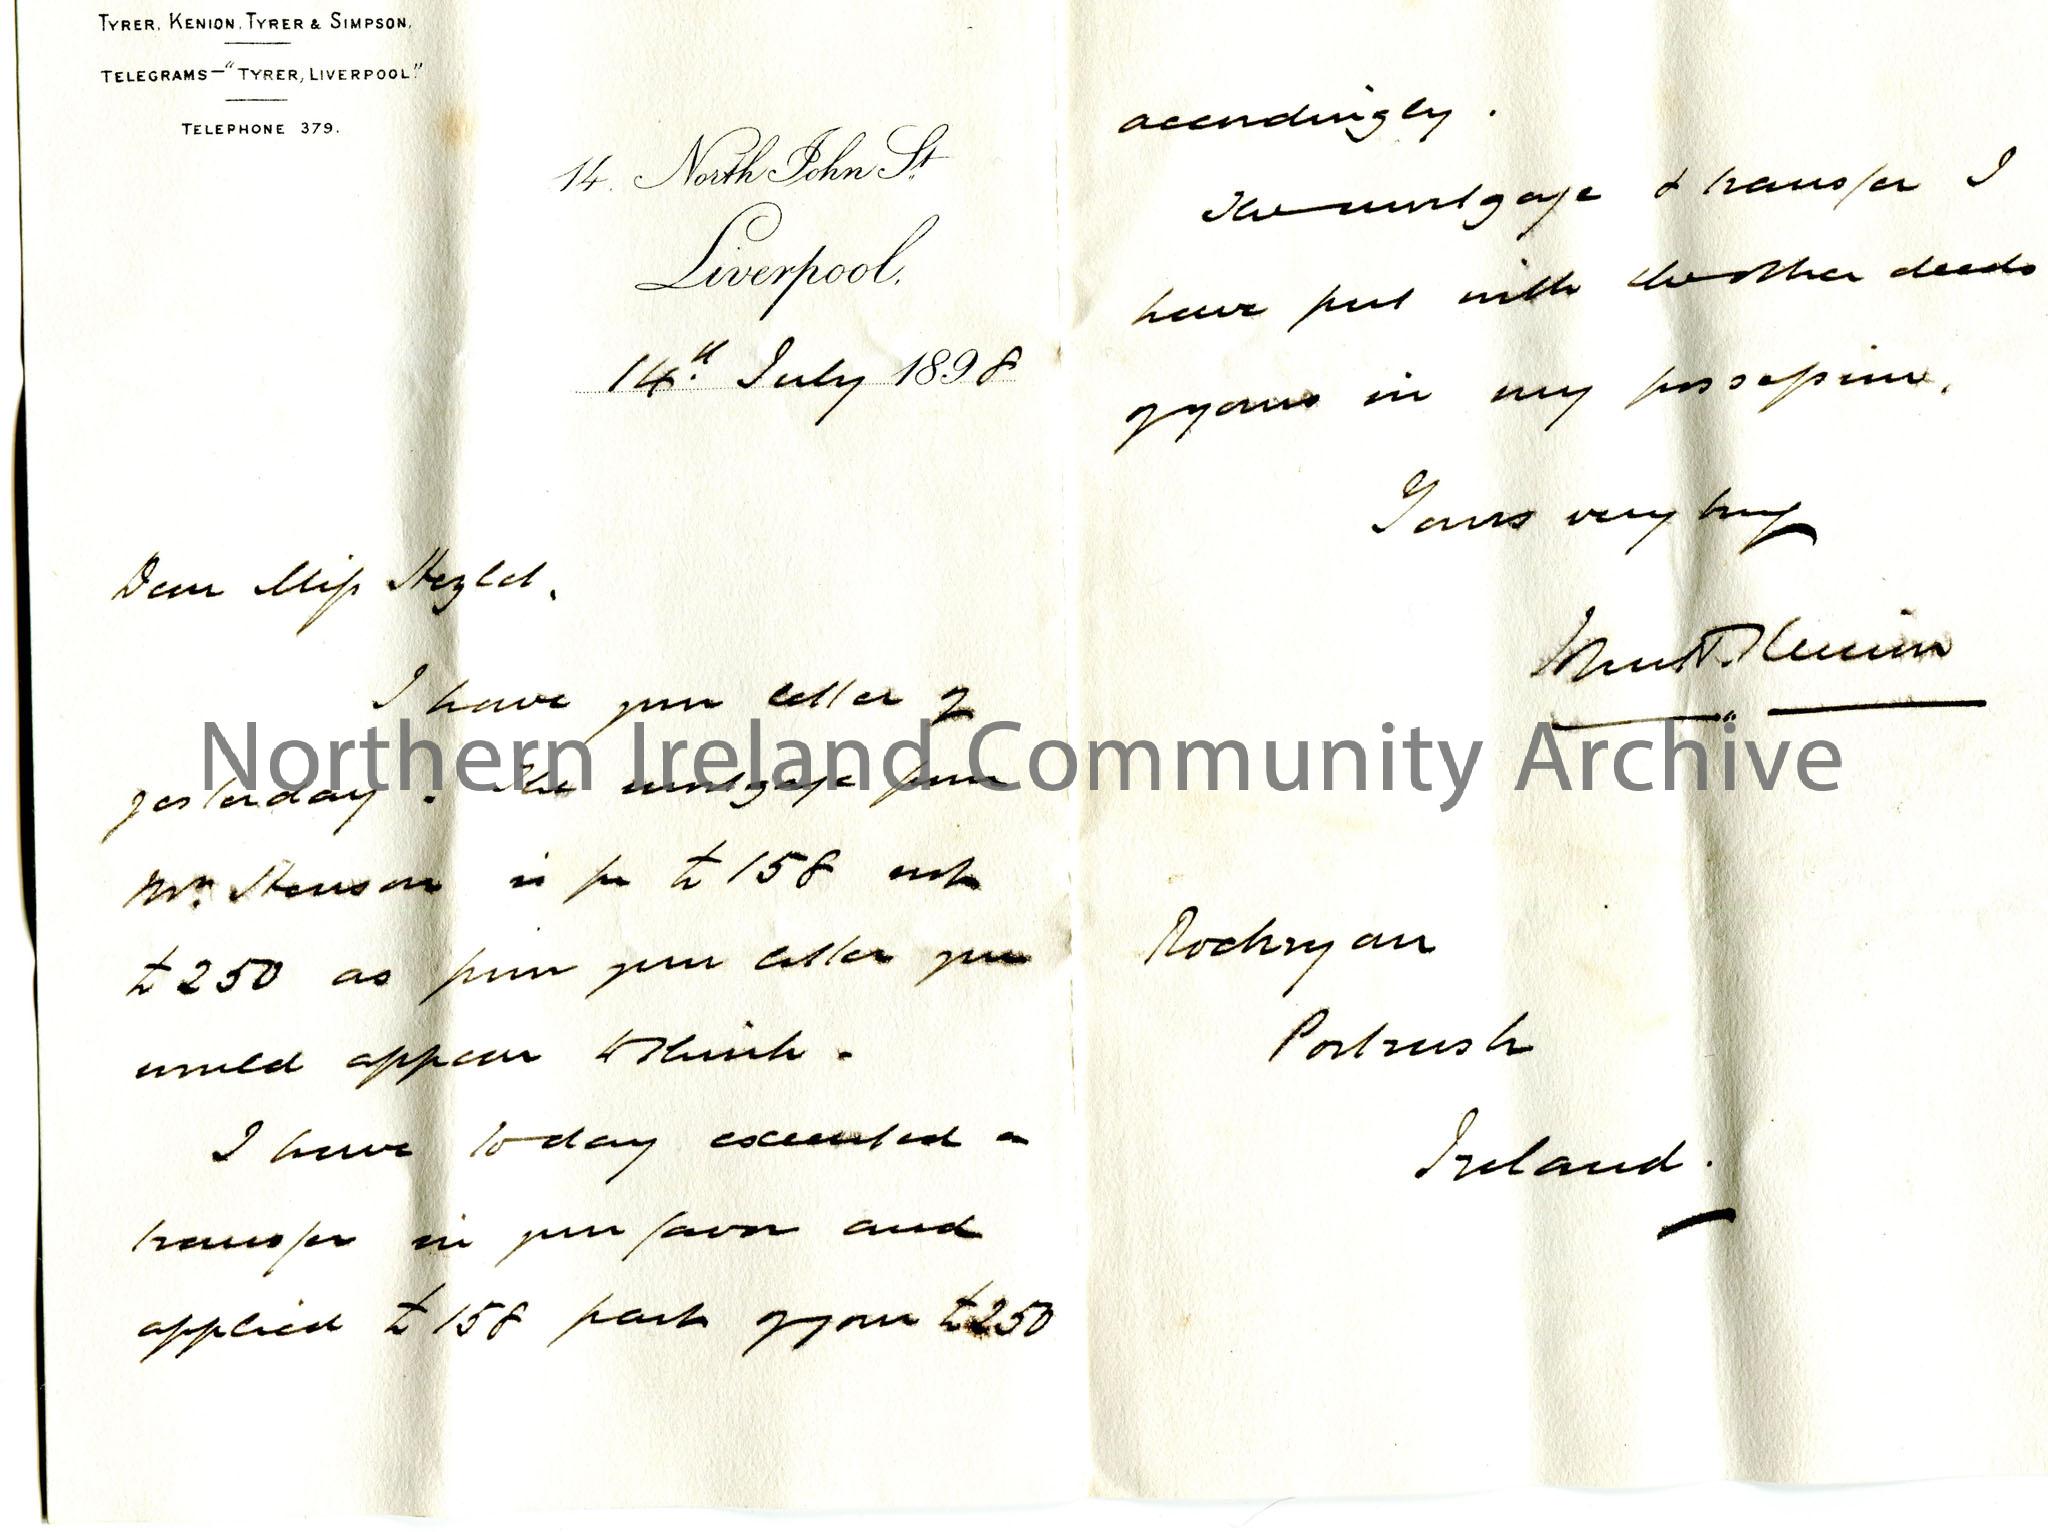 TYRER, KENION, TYRER & SIMPSON,
TELEGRAMS—"TYRER, LIVERPOOL."
TELEPHONE 379.
14. North John St.
Liverpool.
14th July 1898
Dear Miss Hezlet.
I have your letter of
yesterday. The mortgage from
Mr. Henson is for £158 not
£250 as from your letter you
would appear to think.
I have today executed a
transfer in your favor and
applied £158 part of your £250
accordingly.
The mortgage & transfer I
have put with the other deeds
of yours in my possession.
Yours very truly
Kenion
Rockryan
Portrush
Ireland.
Northern Ireland Community Archive